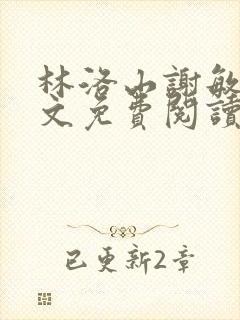 林洛山謝敏
文免費閱讀
已更新2章